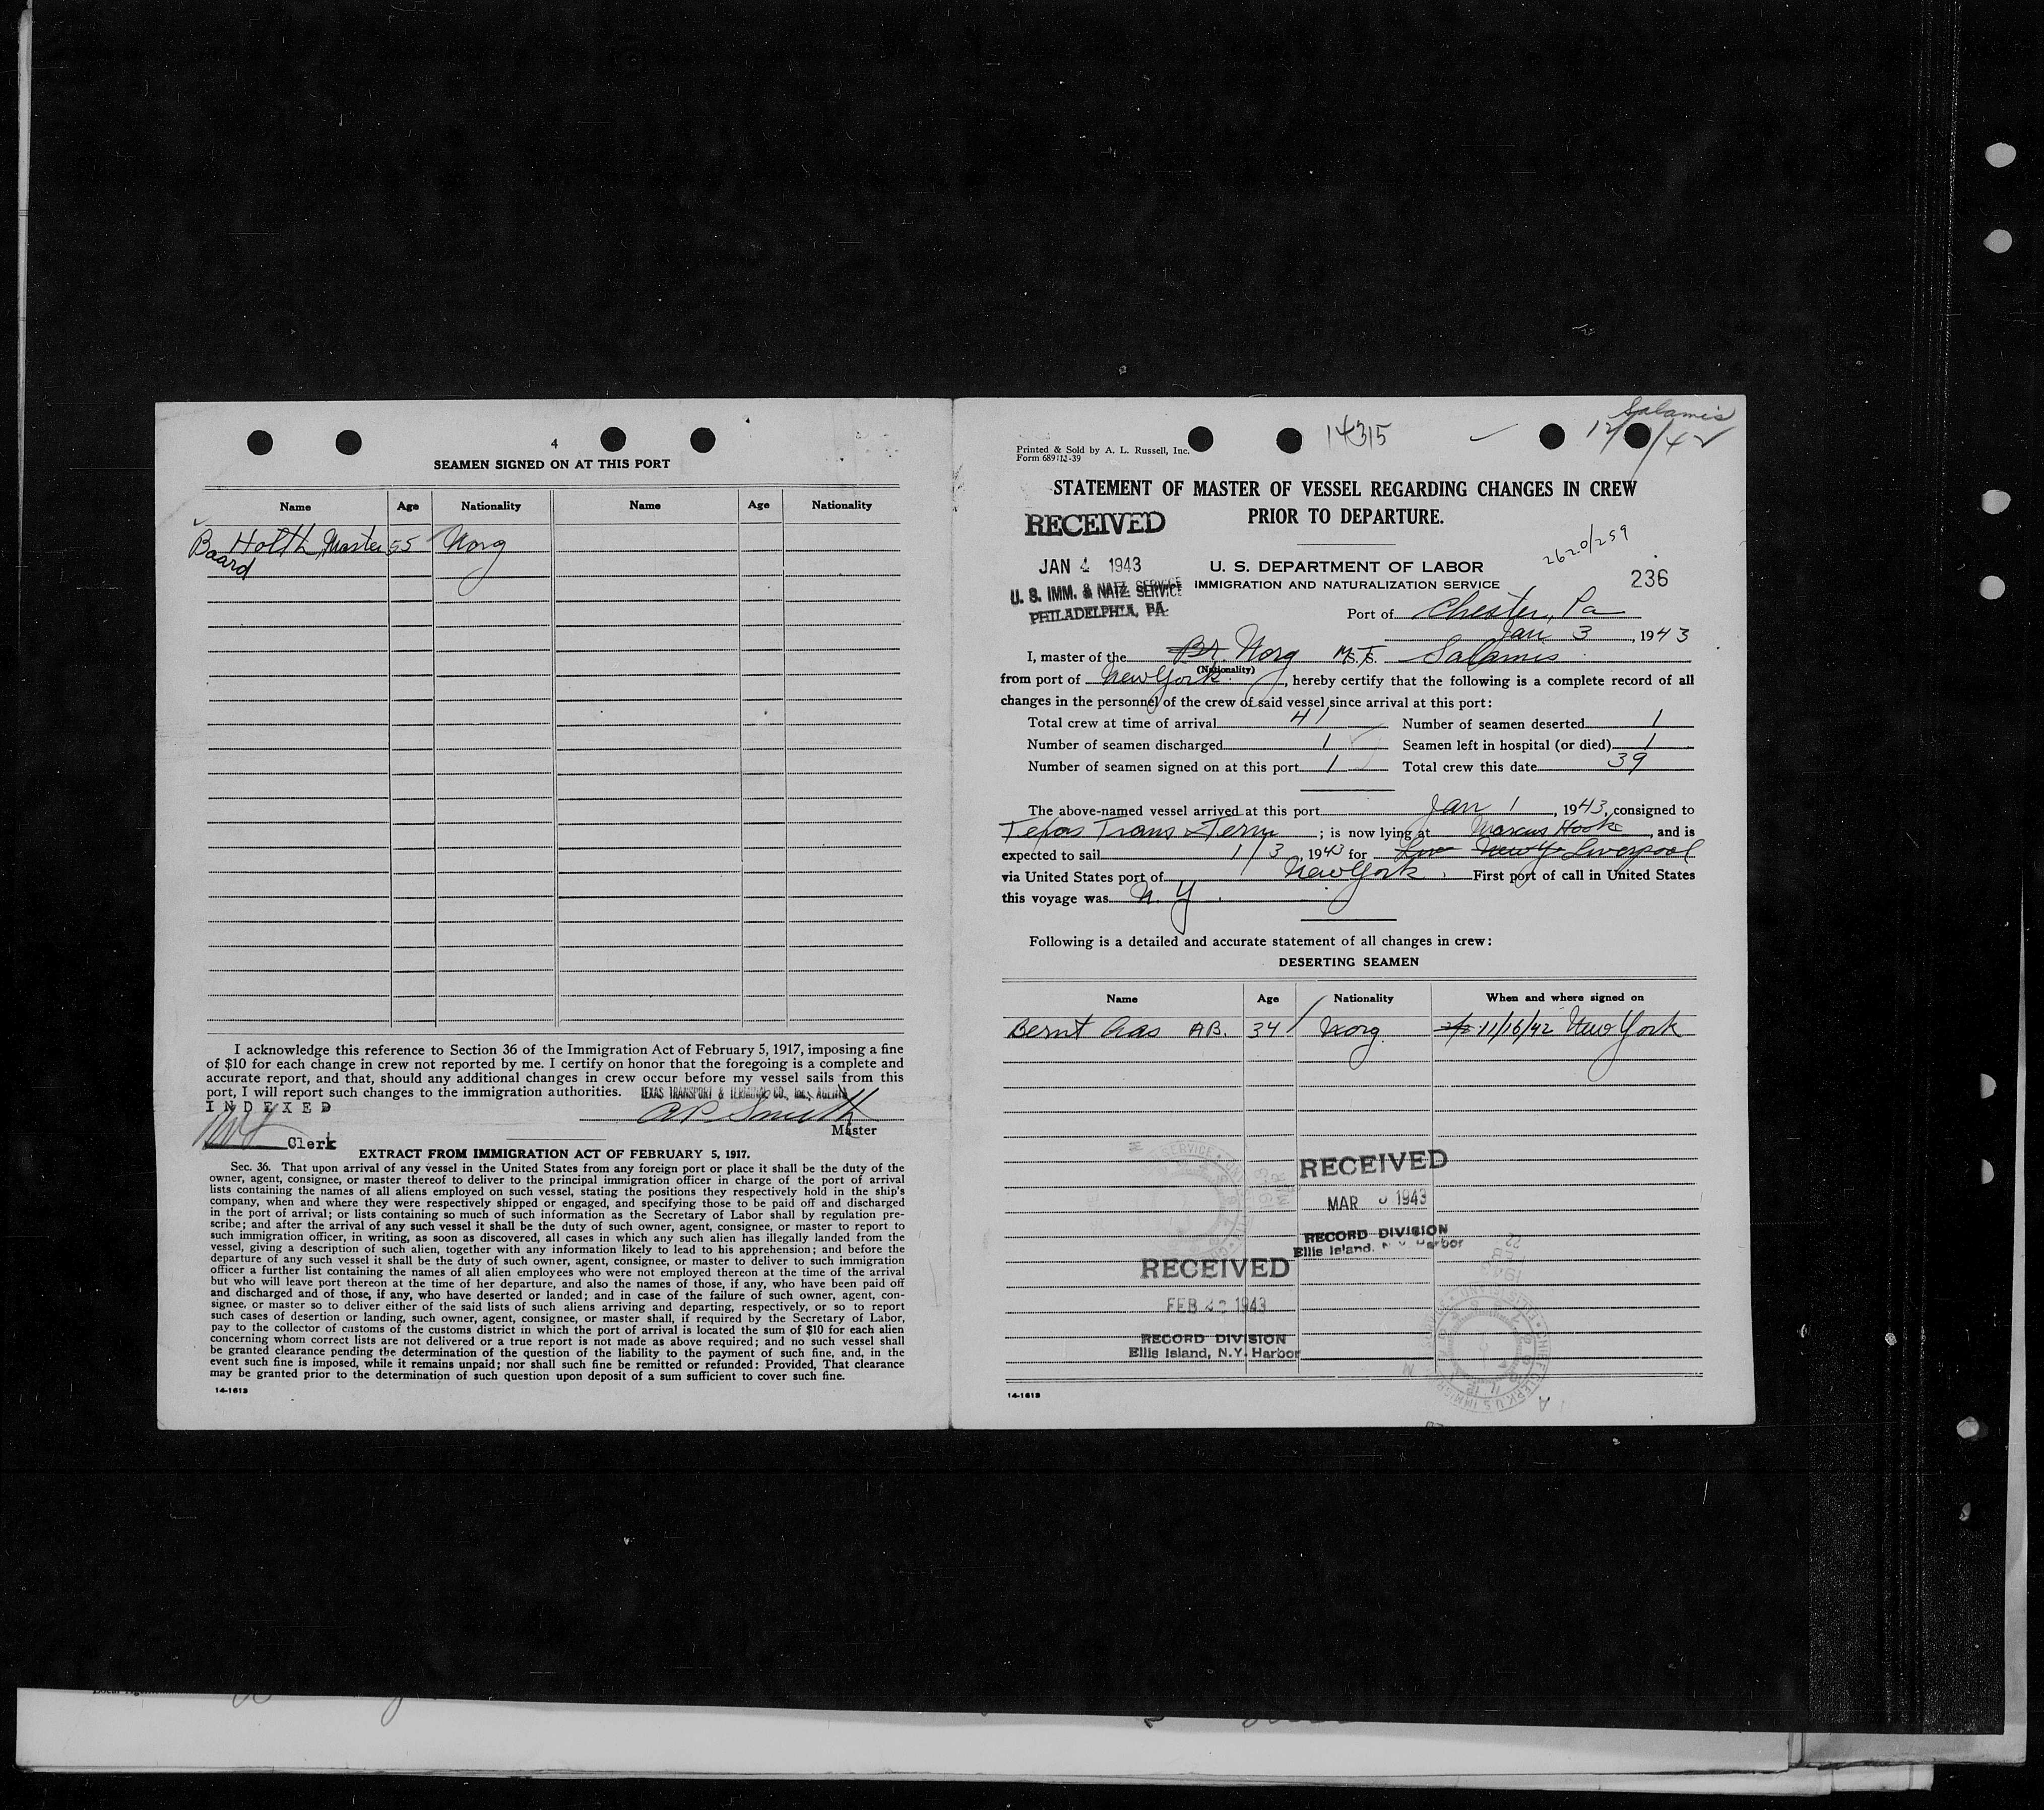 4
SEAMEN SIGNED ON AT THIS PORT
Name Age Nationality Name Age Nationality
Baard Holth Master 55 Norg
I acknowledge this reference to Section 36 of the Immigration Act of February 5, 1917, imposing a fine
of $10 for each change in crew not reported by me. I certify on honor that the foregoing is a complete and
accurate report, and that, should any additional changes in crew occur before my vessel sails from this
port, I will report such changes to the immigration authorities. TEXAS TRANSPORT & TERMINAL CO., Inc., AGENTS
INDEXED
Clerk
Master
EXTRACT FROM IMMIGRATION ACT OF FEBRUARY 5, 1917.
Sec. 36. That upon arrival of any vessel in the United States from any foreign port or place it shall be the duty of the
owner, agent, consignee, or master thereof to deliver to the principal immigration officer in charge of the port of arrival
lists containing the names of all aliens employed on such vessel, stating the positions they respectively hold in the ship's
company, when and where they were respectively shipped or engaged, and specifying those to be paid off and discharged
in the port of arrival; or lists containing so much of such information as the Secretary of Labor shall by regulation pre-
scribe; and after the arrival of any such vessel it shall be the duty of such owner, agent, consignee, or master to report to
such immigration officer, in writing, as soon as discovered, all cases in which any such alien has illegally landed from the
vessel, giving a description of such alien, together with any information likely to lead to his apprehension; and before the
departure of any such vessel it shall be the duty of such owner, agent, consignee, or master to deliver to such immigration
officer a further list containing the names of all alien employees who were not employed thereon at the time of the arrival
but who will leave port thereon at the time of her departure, and also the names of those, if any, who have been paid off
and discharged and of those, if any, who have deserted or landed; and in case of the failure of such owner, agent, con-
signee, or master so to deliver either of the said lists of such aliens arriving and departing, respectively, or so to report
such cases of desertion or landing, such owner, agent, consignee, or master shall, if required by the Secretary of Labor,
pay to the collector of customs of the customs district in which the port of arrival is located the sum of $10 for each alien
concerning whom correct lists are not delivered or a true report is not made as above required; and no such vessel shall
be granted clearance pending the determination of the question of the liability to the payment of such fine, and, in the
event such fine is imposed, while it remains unpaid; nor shall such fine be remitted or refunded: Provided, That clearance
may be granted prior to the determination of such question upon deposit of a sum sufficient to cover such fine.
14-1613
Salamis
14315
Printed & Sold by A. L. Russell, Inc.
STATEMENT OF MASTER OF VESSEL REGARDING CHANGES IN CREW
PRIOR TO DEPARTURE.
RECEIVED
JAN 4 1943
U. S. IMM. & NATZ. SERVICE
PHILADELPHIA, PA.
U. S. DEPARTMENT OF LABOR
IMMIGRATION AND NATURALIZATION SERVICE
2620/259
236
Port of Chester, Pa
Jan 3, 1943
I, master of the Br. Norg M.S. Salamis
(Nationality)
from port of New York, hereby certify that the following is a complete record of all
changes in the personnel of the crew of said vessel since arrival at this port:
Total crew at time of arrival 41 Number of seamen deserted 1
Number of seamen discharged 1 Seamen left in hospital (or died) 1
Number of seamen signed on at this port 1 Total crew this date 39
The above-named vessel arrived at this port Jan 1, 1943, consigned to
Texas Trans & Term; is now lying at Marcus Hook, and is
expected to sail 1/3, 1943 for Liverpool
via United States port of New York. First port of call in United States
this voyage was N. Y.
Following is a detailed and accurate statement of all changes in crew:
DESERTING SEAMEN
Name Age Nationality When and where signed on
Bernt Aas AB. 34 Norg 11/16/42 New York
RECEIVED
MAR 1943
RECORD DIVISION
Ellis Island, N.Y. Harbor
RECEIVED
FEB 1943
RECORD DIVISION
Ellis Island, N.Y. Harbor
14-1613